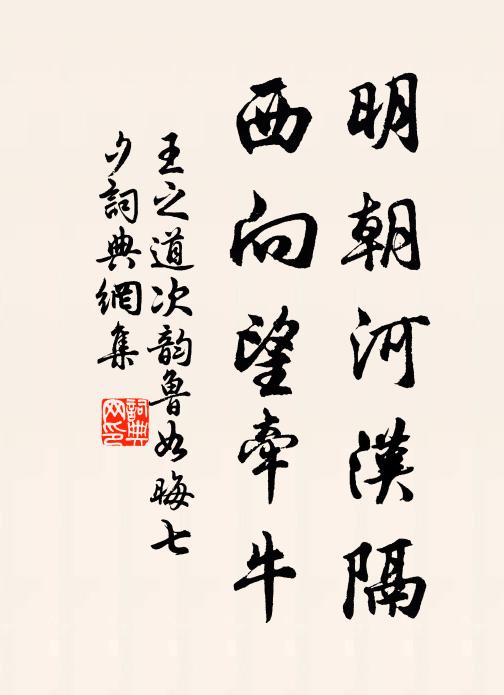 明朝河漢隔
西向望牽牛
王之道次韵魯如晦七
夕詞典網集
詞典
网印